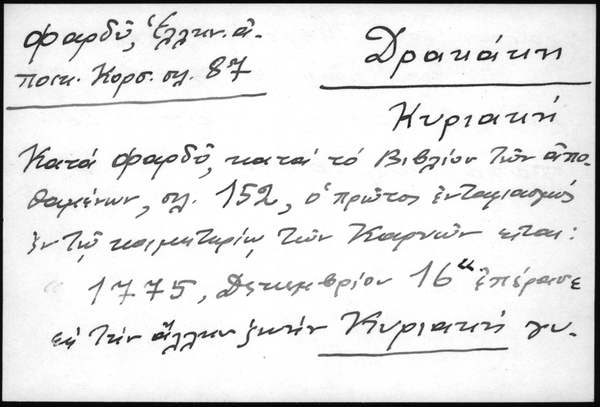 Φαρδῦ, Ἑλλην. ἀ-
ποικ. Κορσ. σλ. 87
Δρακάκη
Κυριακή
Κατά Φαρδῦ, κατά τό Βιβλίον τῶν ἀπο-
θαμένων, σλ. 152, ὁ πρῶτος ἐνταφιασμός
ἐν τῷ κοιμητηρίῳ τῶν Καρυῶν εἶναι:
" 1775, Δεκεμβρίου 16 " ἐπέρασε
εἰς τήν ἄλλην ζωήν Κυριακή γυ-